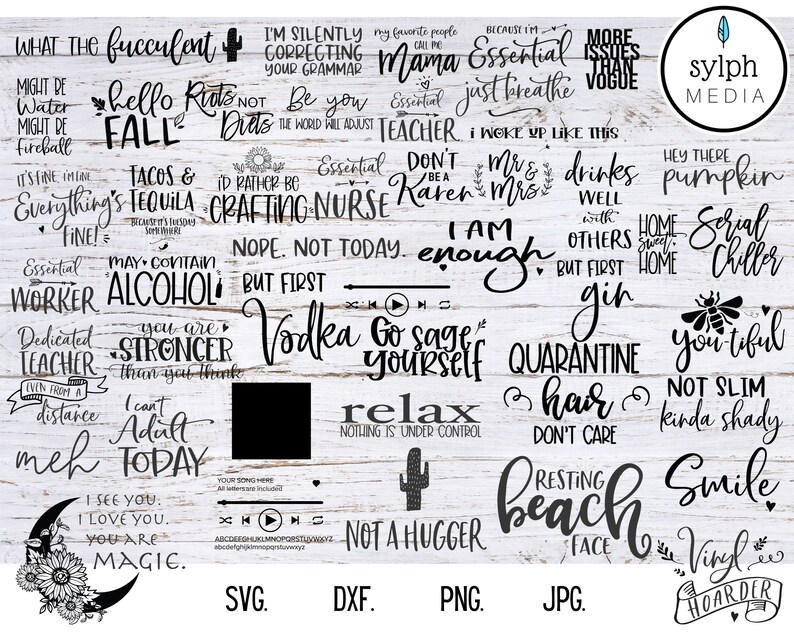 WHAT THE fucculent
I'M SILENTLY
CORRECTING
YOUR GRAMMAR
my favorite people
CALL ME
Mama
BECAUSE I'M
Essential
MORE
ISSUES
THAN
VOGUE
sylph
MEDIA
MIGHT BE
Water
MIGHT BE
fireball
hello
FALL
Riots NOT
Diets
Be you
THE WORLD WILL ADJUST
Essential
TEACHER
just breathe
i WOKE UP LIKE THIS
IT'S FINE, I'M FINE,
Everything's
FINE!
TACOS &
TEQUILA
BECAUSE IT'S TUESDAY
SOMEWHERE
I'D RATHER BE
CRAFTING
Essential
NURSE
DON'T
BE A
Karen
Mr &
Mrs
drinks
WELL
with
OTHERS
HEY THERE
pumpkin
NOPE. NOT TODAY.
I AM
enough
HOME
Sweet
HOME
Serial
Chiller
Essential
WORKER
MAY CONTAIN
ALCOHOL
BUT FIRST
Vodka
BUT FIRST
gin
Dedicated
TEACHER
EVEN FROM A
distance
you are
STRONGER
than you think
Go sage
yourself
QUARANTINE
hair
DON'T CARE
you-tiful
NOT SLIM
kinda shady
I can't
Adult
TODAY
relax
NOTHING IS UNDER CONTROL
meh
YOUR SONG HERE
All letters are included
ABCDEFGHIJKLMNOPQRSTUVWXYZ
abcdefghijklmnopqrstuvwxyz
NOT A HUGGER
RESTING
beach
FACE
Smile
I SEE YOU.
I LOVE YOU.
YOU ARE
MAGIC.
Vinyl
HOARDER
SVG. DXF. PNG. JPG.